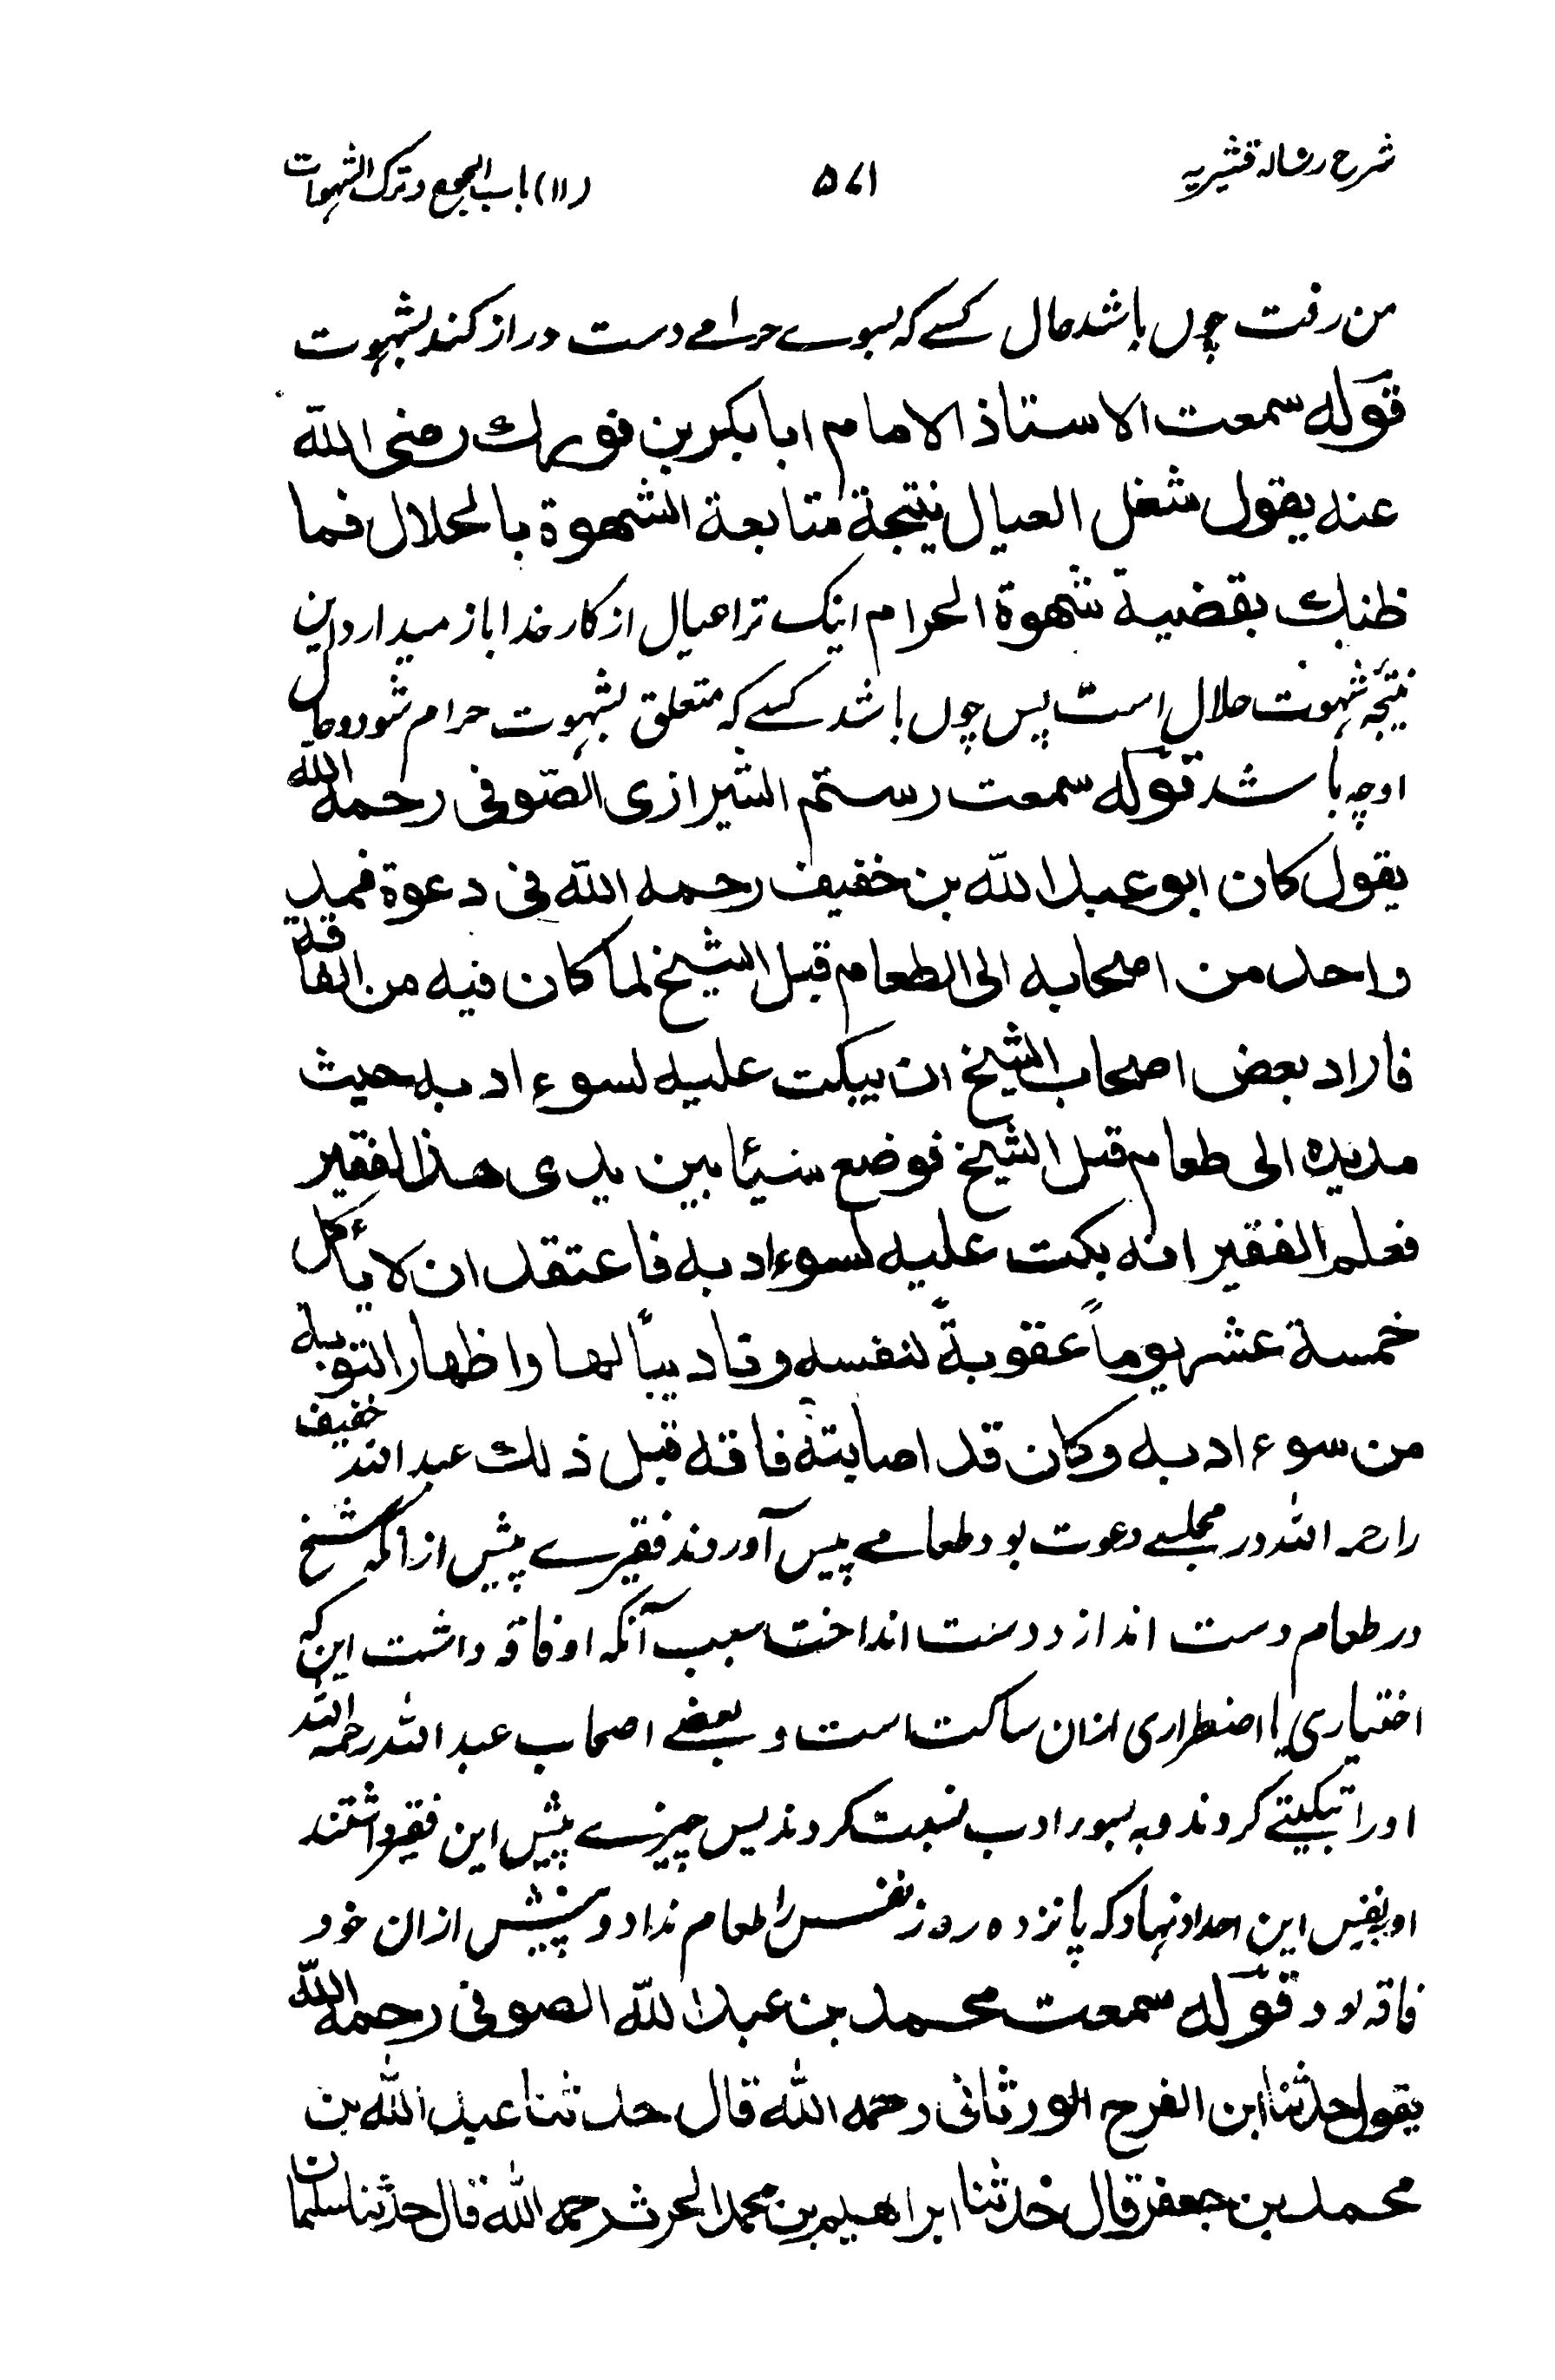 شرح رسالہ قشیریہ
۵۷۱
(۱۱) باب الجوع و ترک الشہوات
من رفت چوں باشد حال کسے کہ بسوے حرامے دست دراز کند بشہوت
قوله سمعت الاستاذ الامام ابا بكر بن فورك رضى الله
عنه يقول شغل العيال نتيجة متابعة الشهوة بالحلال فما
ظنك بقضية شهوة الحرام اینک ترا عیال از کار خدا باز میدارد این
نتیجہ شہوت حلال است پس چوں باشد کسے کہ متعلق بشہوت حرام شود و حال
او چہ باشد قوله سمعت رستم الشيرازى الصوفى رحمه الله
يقول كان ابو عبد الله بن خفيف رحمه الله فى دعوة فمد يد
واحد من اصحابه الى الطعام قبل الشيخ لما كان فيه من الفاقة
فاراد بعض اصحاب الشيخ ان يبكت عليه لسوء ادبه حيث
مد يده الى طعام قبل الشيخ فوضع شيئا بين يدى هذا لفقير
فعلم الفقير انه بكت عليه لسوء ادبه فاعتقد ان لا يأكل
خمسة عشر يوماً عقوبةً لنفسه وتاديباً لها واظهار التوبة
من سوء ادبه وكان قد اصابته فاقه قبل ذلك عبد اللہ خفیف
را رحمہ اللہ در مجلسے دعوت بود طعامے پیس آوردند فقیرے پیش ازانکہ شیخ
در طعام دست اندازد دست انداخت سبب آنکہ او فاقہ داشت این کہ
اختیاری یا اضطراری ازان ساکت است و بعضے اصحاب عبد اللہ رحمہ اللہ
او را تبکیتے کردند و بہ سور ادب نسبت کردند پس چیزے پیش این فقیر داشتند
او بنفیس این امداد نہاد کہ پانزدہ روز نفس را طعام نداد و پیش ازان خود
فاقہ بود قوله سمعت محمد بن عبد الله الصوفى رحمه الله
يقول حدثنا ابن الفرح الورثانى رحمه الله قال حدثنا عبد الله بن
محمد بن جعفر قال حدثنا ابراهيم بن محمد الحرث رحمه الله قال حدثنا سلمان